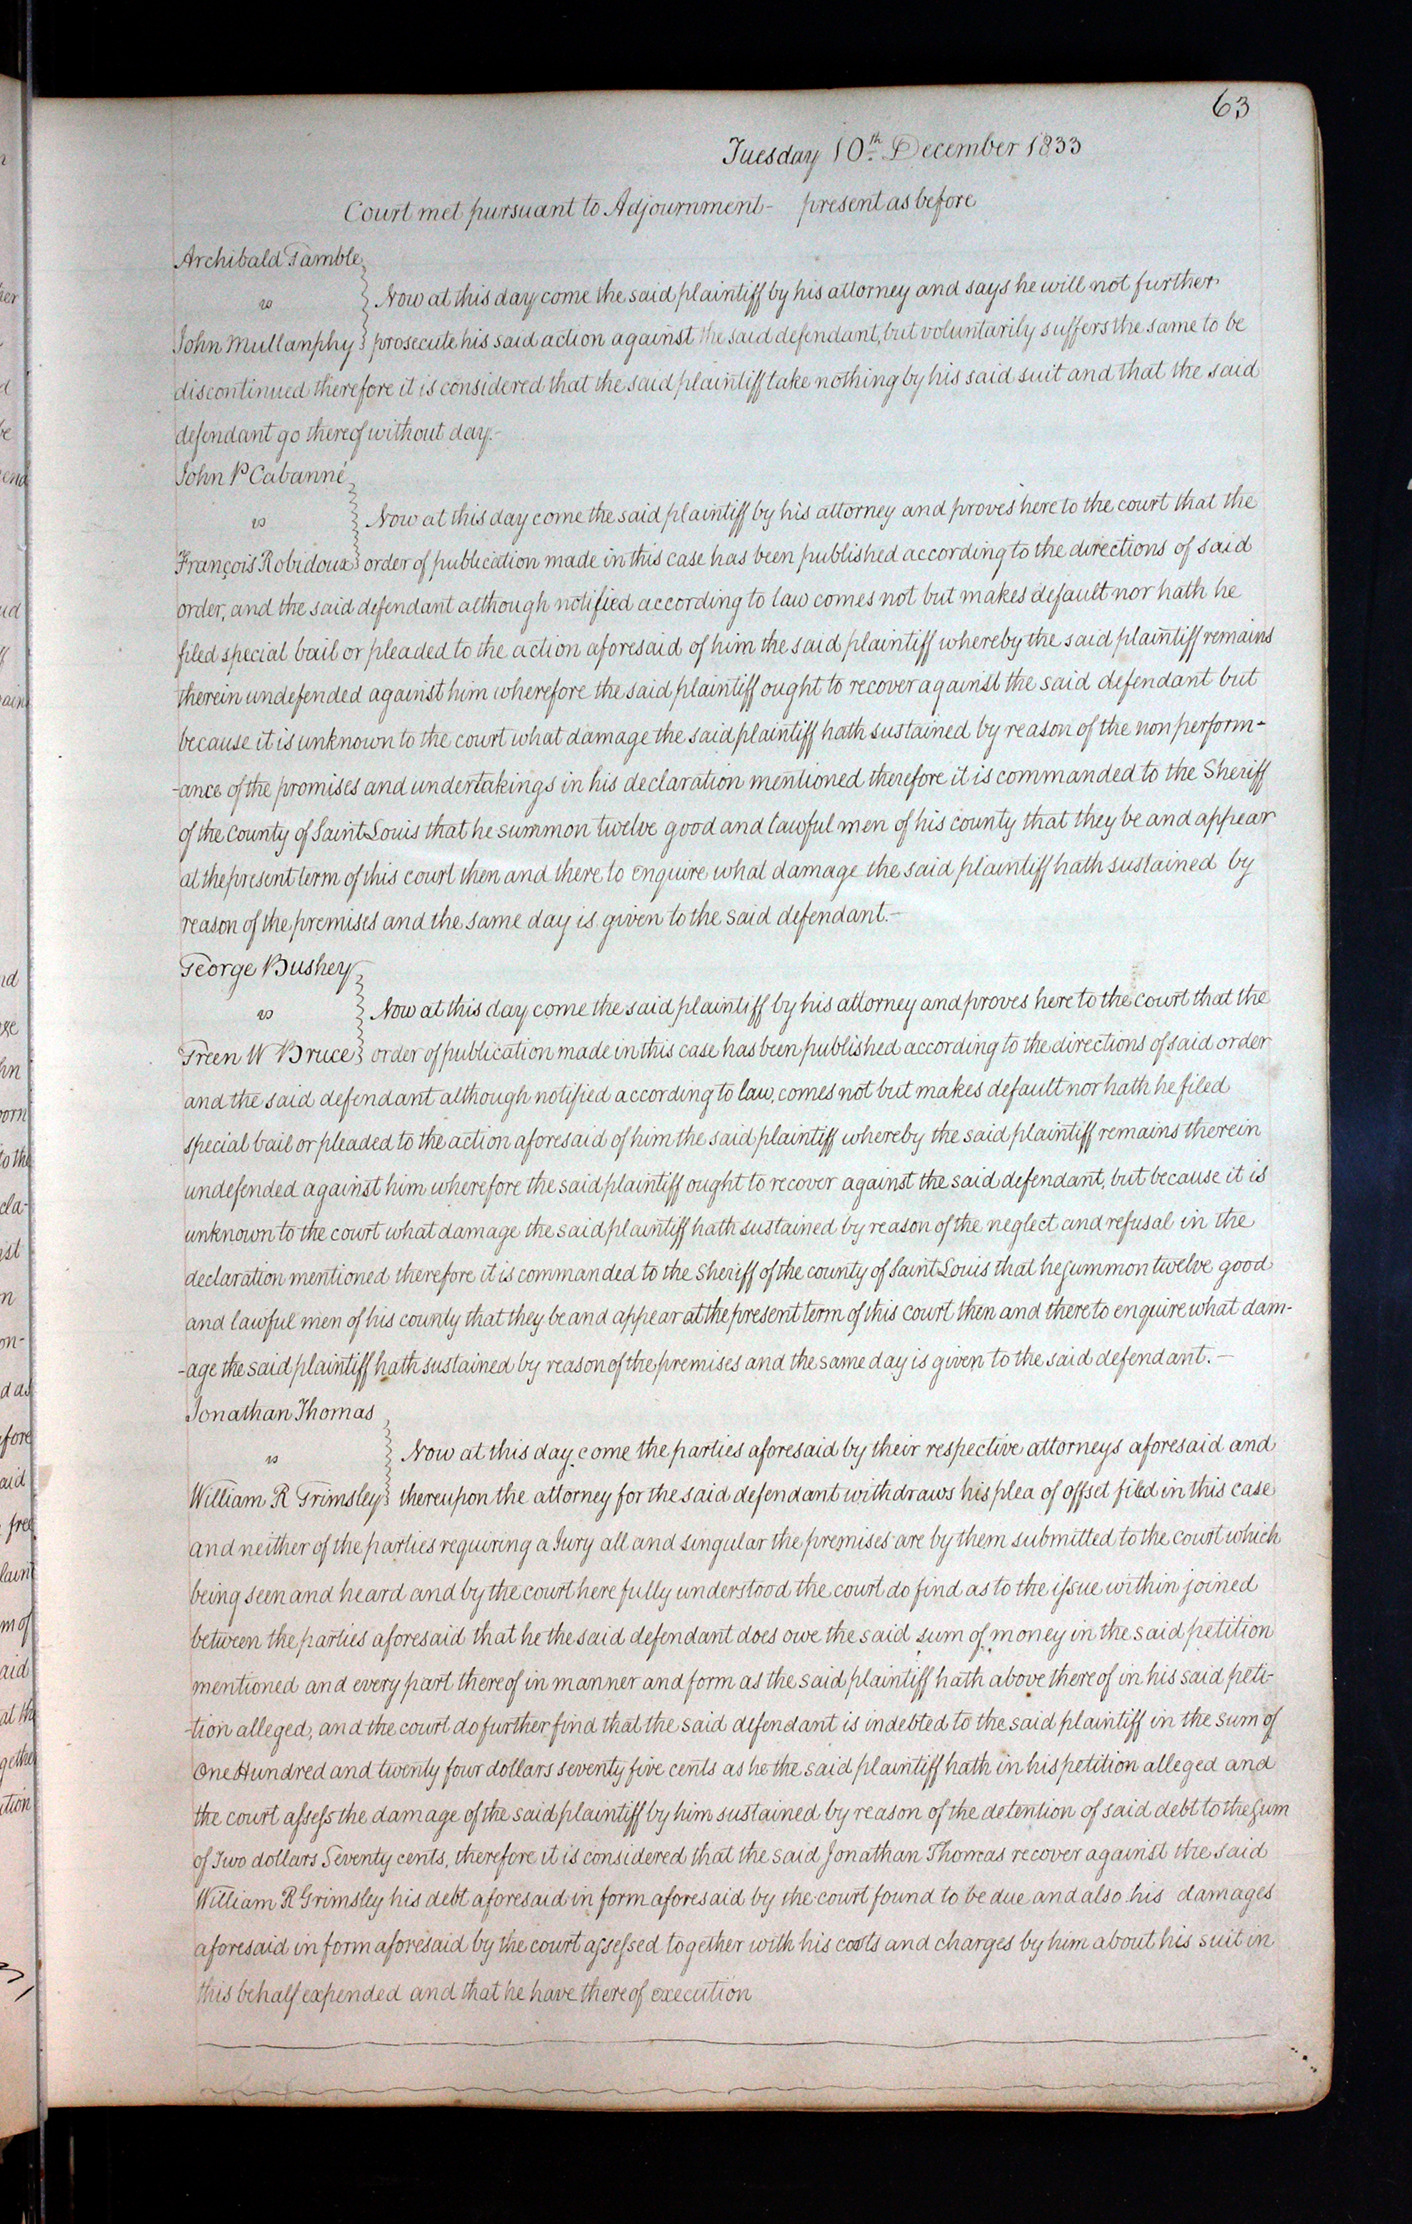 63
Tuesday 10th December 1833
Court met pursuant to Adjournment - present as before
Archibald Gamble
vs
Now at this day come the said plaintiff by his attorney and says he will not further
John Mullanphy prosecute his said action against the said defendant, but voluntarily suffers the same to be
discontinued therefore it is considered that the said plaintiff take nothing by his said suit and that the said
defendant go thereof without day.-
John P Cabanné
vs
Now at this day come the said plaintiff by his attorney and proves here to the court that the
François Robidoux order of publication made in this case has been published according to the directions of said
order, and the said defendant although notified according to law comes not but makes default nor hath he
filed special bail or pleaded to the action aforesaid of him the said plaintiff whereby the said plaintiff remains
therein undefended against him wherefore the said plaintiff ought to recover against the said defendant but
because it is unknown to the court what damage the said plaintiff hath sustained by reason of the non perform-
-ance of the promises and undertakings in his declaration mentioned therefore it is commanded to the Sheriff
of the County of Saint Louis that he summon twelve good and lawful men of his county that they be and appear
at the present term of this court then and there to enquire what damage the said plaintiff hath sustained by
reason of the premises and the same day is given to the said defendant.-
George Bushey
vs
Now at this day come the said plaintiff by his attorney and proves here to the court that the
Green W Bruce order of publication made in this case has been published according to the directions of said order
and the said defendant although notified according to law, comes not but makes default nor hath he filed
special bail or pleaded to the action aforesaid of him the said plaintiff whereby the said plaintiff remains therein
undefended against him wherefore the said plaintiff ought to recover against the said defendant, but because it is
unknown to the court what damage the said plaintiff hath sustained by reason of the neglect and refusal in the
declaration mentioned therefore it is commanded to the Sheriff of the county of Saint Louis that he summon twelve good
and lawful men of his county that they be and appear at the present term of this court then and there to enquire what dam-
-age the said plaintiff hath sustained by reason of the premises and the same day is given to the said defendant.-
Jonathan Thomas
vs
Now at this day come the parties aforesaid by their respective attorneys aforesaid and
William R Grimsley thereupon the attorney for the said defendant withdraws his plea of offset filed in this case
and neither of the parties requiring a Jury all and singular the premises are by them submitted to the court which
being seen and heard and by the court here fully understood the court do find as to the issue within joined
between the parties aforesaid that he the said defendant does owe the said sum of money in the said petition
mentioned and every part thereof in manner and form as the said plaintiff hath above thereof in his said peti-
-tion alleged, and the court do further find that the said defendant is indebted to the said plaintiff in the sum of
One Hundred and twenty four dollars seventy five cents as he the said plaintiff hath in his petition alleged and
the court assess the damage of the said plaintiff by him sustained by reason of the detention of said debt to the sum
of Two dollars Seventy cents, therefore it is considered that the said Jonathan Thomas recover against the said
William R Grimsley his debt aforesaid in form aforesaid by the court found to be due and also his damages
aforesaid in form aforesaid by the court assessed together with his costs and charges by him about his suit in
this behalf expended and that he have thereof execution